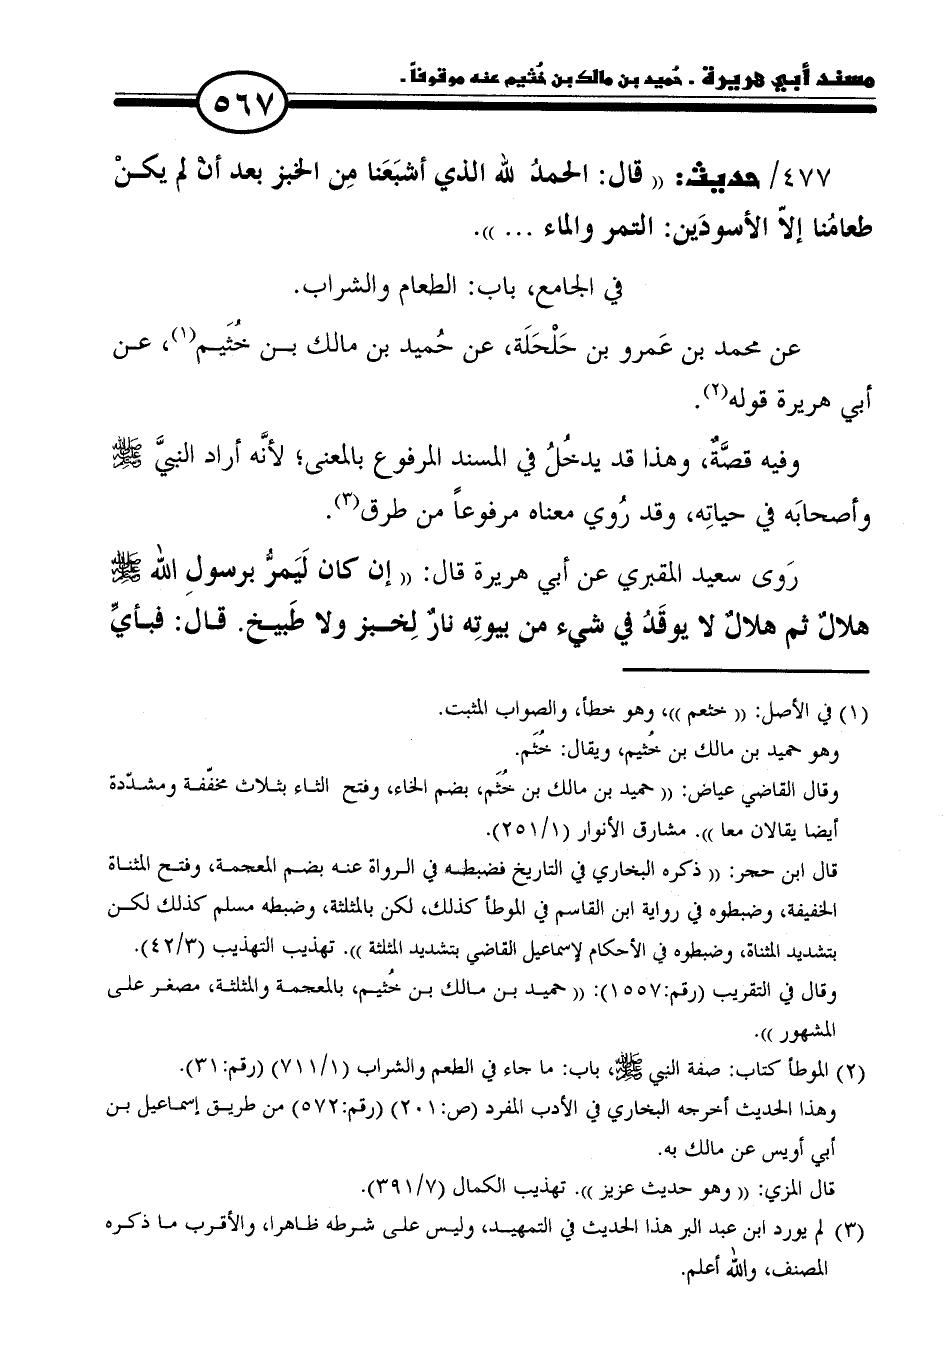 مسند أبي هريرة . حُميد بن مالك بن خُثيم عنه موقوفاً .
٥٦٧
٤٧٧/ حديث: (( قال: الحمدُ لله الذي أشبَعَنا مِن الخبز بعد أنْ لم يكنْ
طعامُنا إلاّ الأسودَين: التمر والماء ... )).
في الجامع، باب: الطعام والشراب.
عن محمد بن عَمرو بن حَلْحَلَة، عن حُميد بن مالك بـن خُثَيـم(١)، عـن
أبي هريرة قوله(٢).
وفيه قصَّةٌ، وهذا قد يدخُلُ في المسند المرفوع بالمعنى؛ لأنَّه أراد النبيَّ ﷺ
وأصحابَه في حياتِه، وقد رُوي معناه مرفوعاً من طرق(٣).
رَوى سعيد المقبري عن أبي هريرة قال: (( إن كان لَيَمرُّ برسولِ الله ﷺ
هلالٌ ثم هلالٌ لا يوقَدُ في شيء من بيوتِه نارٌ لِخـبز ولا طَبيـخ. قـال: فبـأيِّ
(١) في الأصل: (( خثعم ))، وهو خطأ، والصواب المثبت.
وهو حميد بن مالك بن خُثيم، ويقال: خُثَم.
وقال القاضي عياض: (( حميد بن مالك بن خُثَم، بضم الخاء، وفتح الثـاء بثـلاث مخفّفـة ومشـدّدة
أيضا يقالان معا )). مشارق الأنوار (٢٥١/١).
قال ابن حجر: (( ذكره البخاري في التاريخ فضبطـه في الـرواة عنـه بضـم المعجمـة، وفتـح المثناة
الخفيفة، وضبطوه في رواية ابن القاسم في الموطأ كذلك، لكن بالمثلثة، وضبطه مسلم كذلك لكـن
بتشديد المثناة، وضبطوه في الأحكام لإسماعيل القاضي بتشديد المثلثة )). تهذيب التهذيب (٤٢/٣).
وقال في التقريب (رقم:١٥٥٧): (( حميـد بـن مـالك بـن خُثيـم، بالمعجمـة والمثلثـة، مصغـر علـى
المشهور )).
(٢) الموطأ كتاب: صفة النبي ﷺ، باب: ما جاء في الطعم والشراب (٧١١/١) (رقم:٣١).
وهذا الحديث أخرجه البخاري في الأدب المفرد (ص:٢٠١) (رقم:٥٧٢) من طريـق إسمـاعيل بـن
أبي أويس عن مالك به.
قال المزي: (( وهو حديث عزيز )). تهذيب الكمال (٣٩١/٧).
(٣) لم يورد ابن عبد البر هذا الحديث في التمهيـد، وليـس علـى شـرطه ظـاهرا، والأقـرب مـا ذكـره
المصنف، والله أعلم.